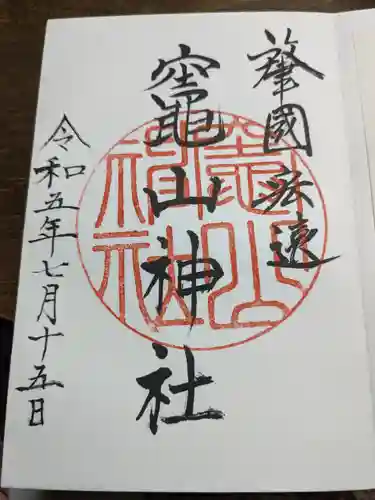 肇國悠遠
竈山神社
令和五年七月十五日
竈山
神社